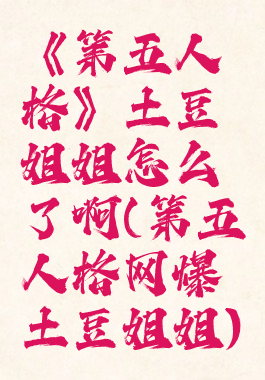 《第五人
格》土豆
姐姐怎么
了啊(第五
人格网爆
土豆姐姐)